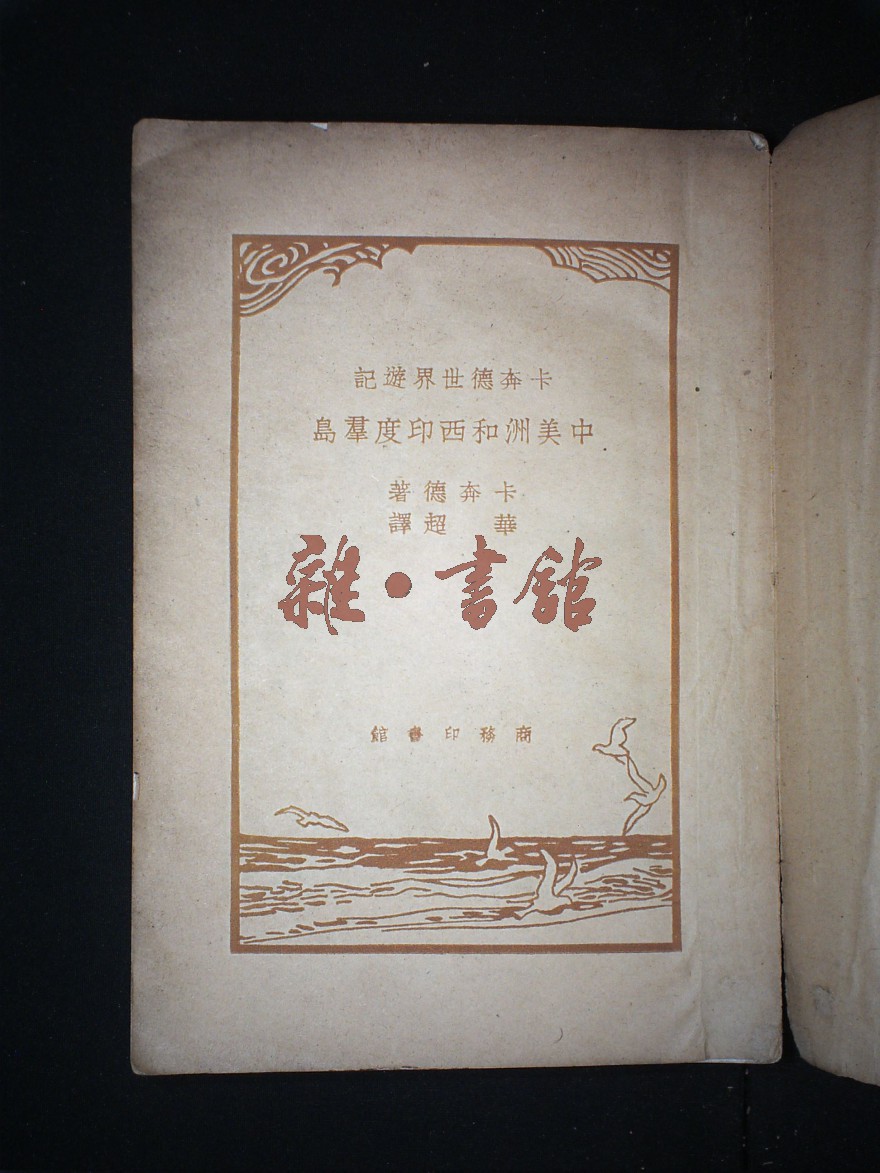 卡奔德世界遊記
中美洲和西印度羣島
卡奔德著
華超譯
雜•書館
商務印書館